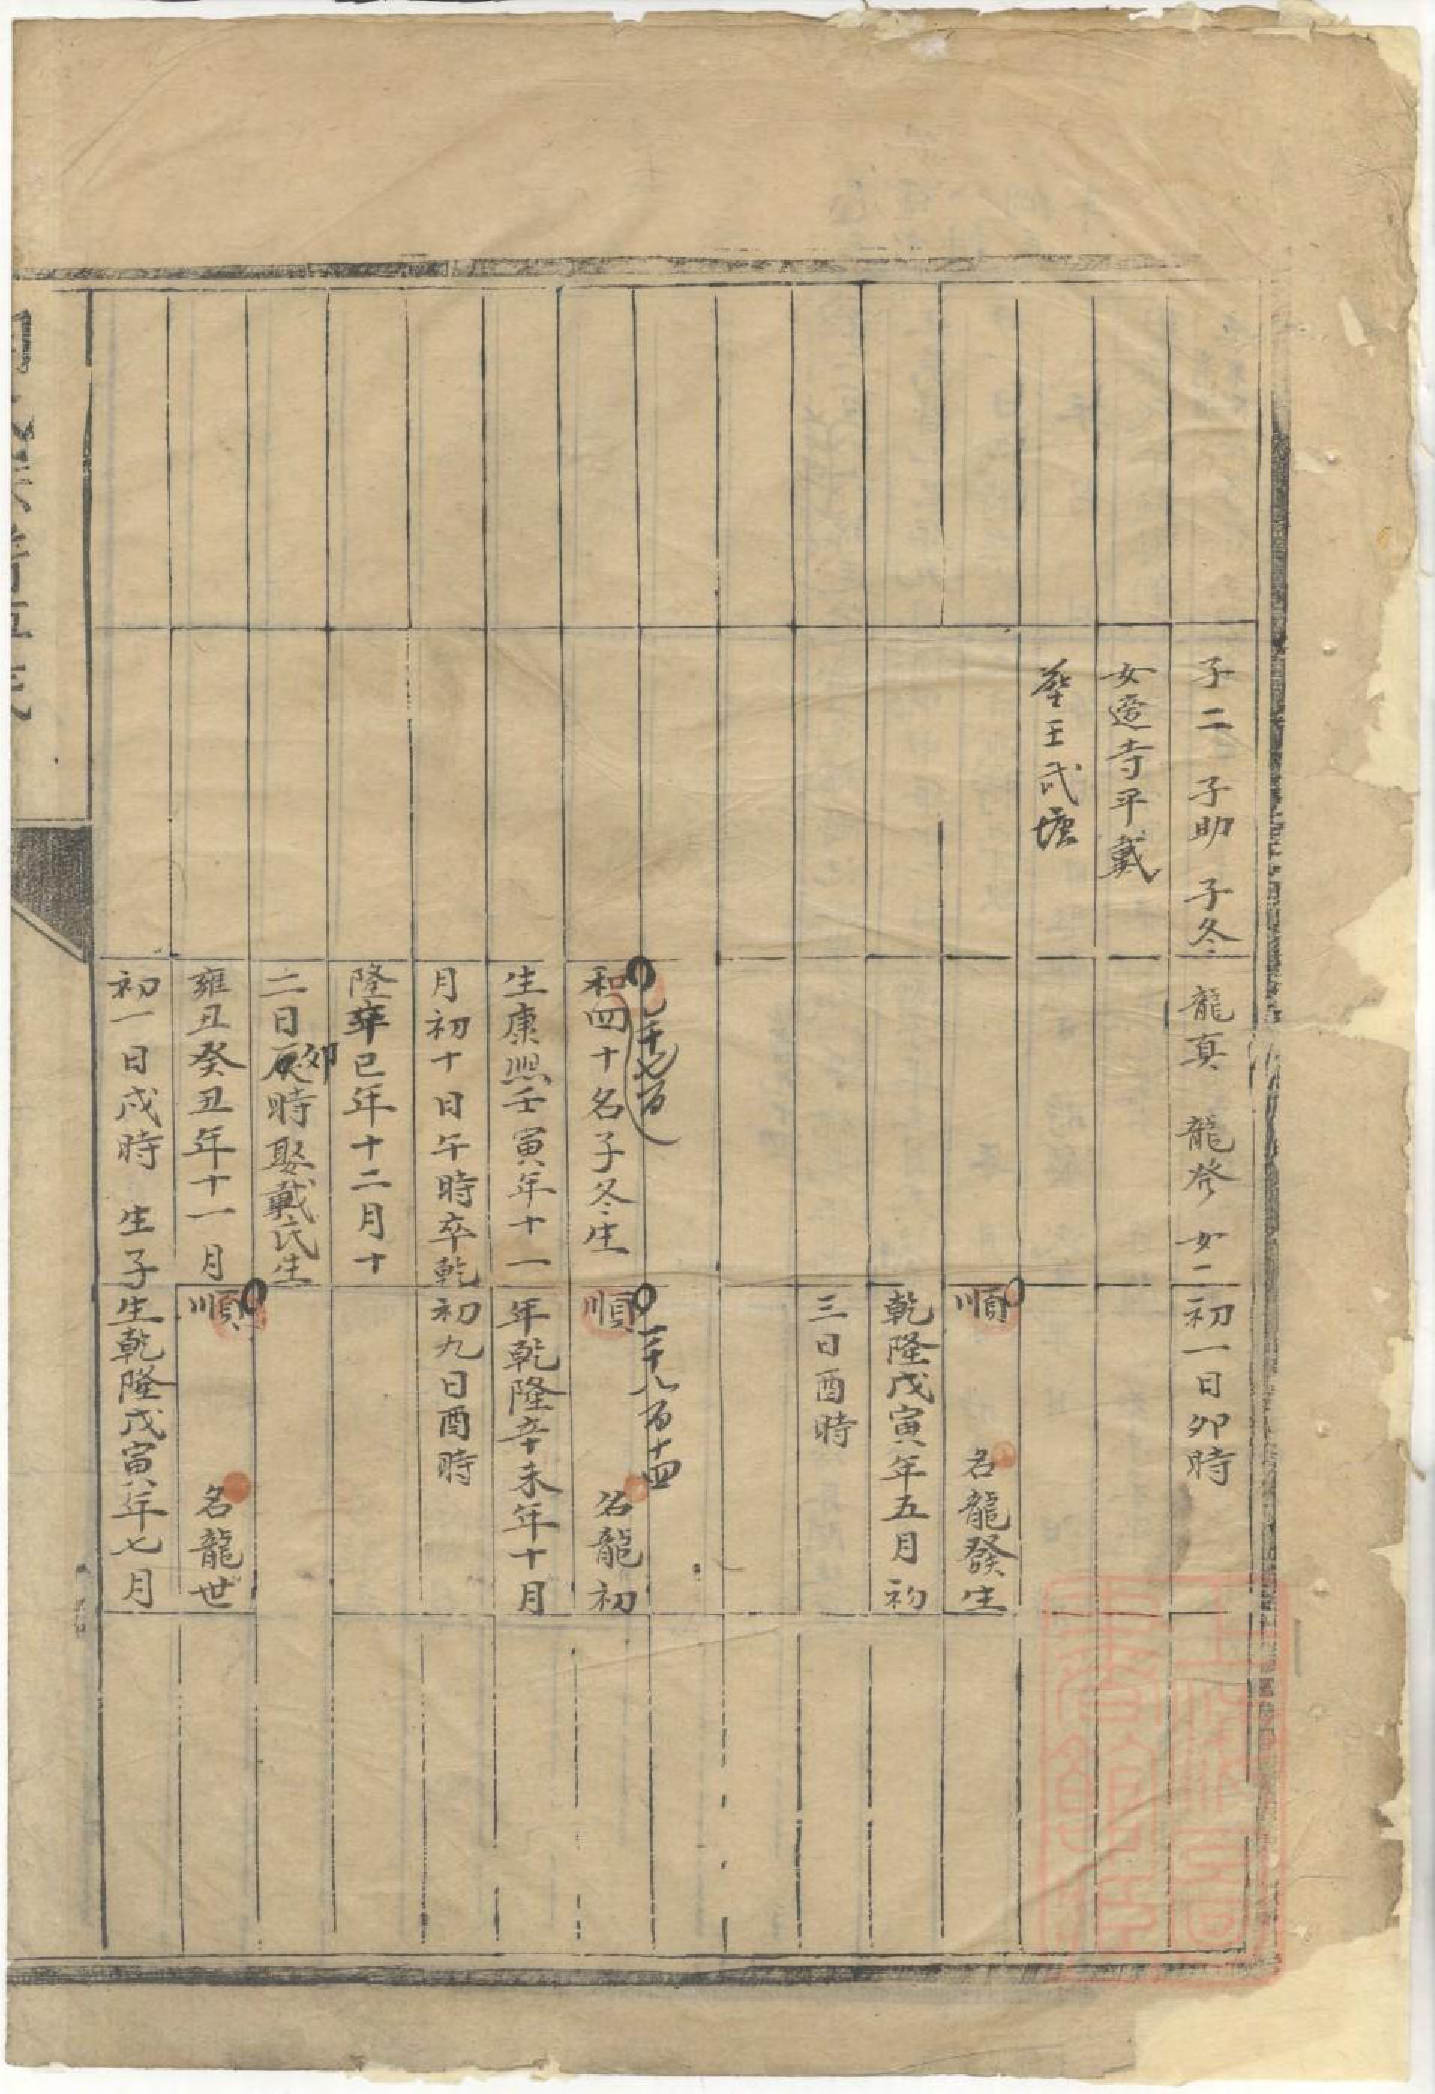 子二 子助 子冬
女適寺平戴
塟王武塘
龍真 龍發 女二
和四十名子冬生
生康熙壬寅年十一
月初十日午時卒乾
隆辛巳年十二月十
二日辰時娶戴氏生
卯
雍丑癸丑年十一月
初一日戌時 生子
初一日卯時
順 名龍發生
乾隆戊寅年五月初
三日酉時
順 名龍初
年乾隆辛未年十月
初九日酉時
順 名龍世
生乾隆戊寅年七月